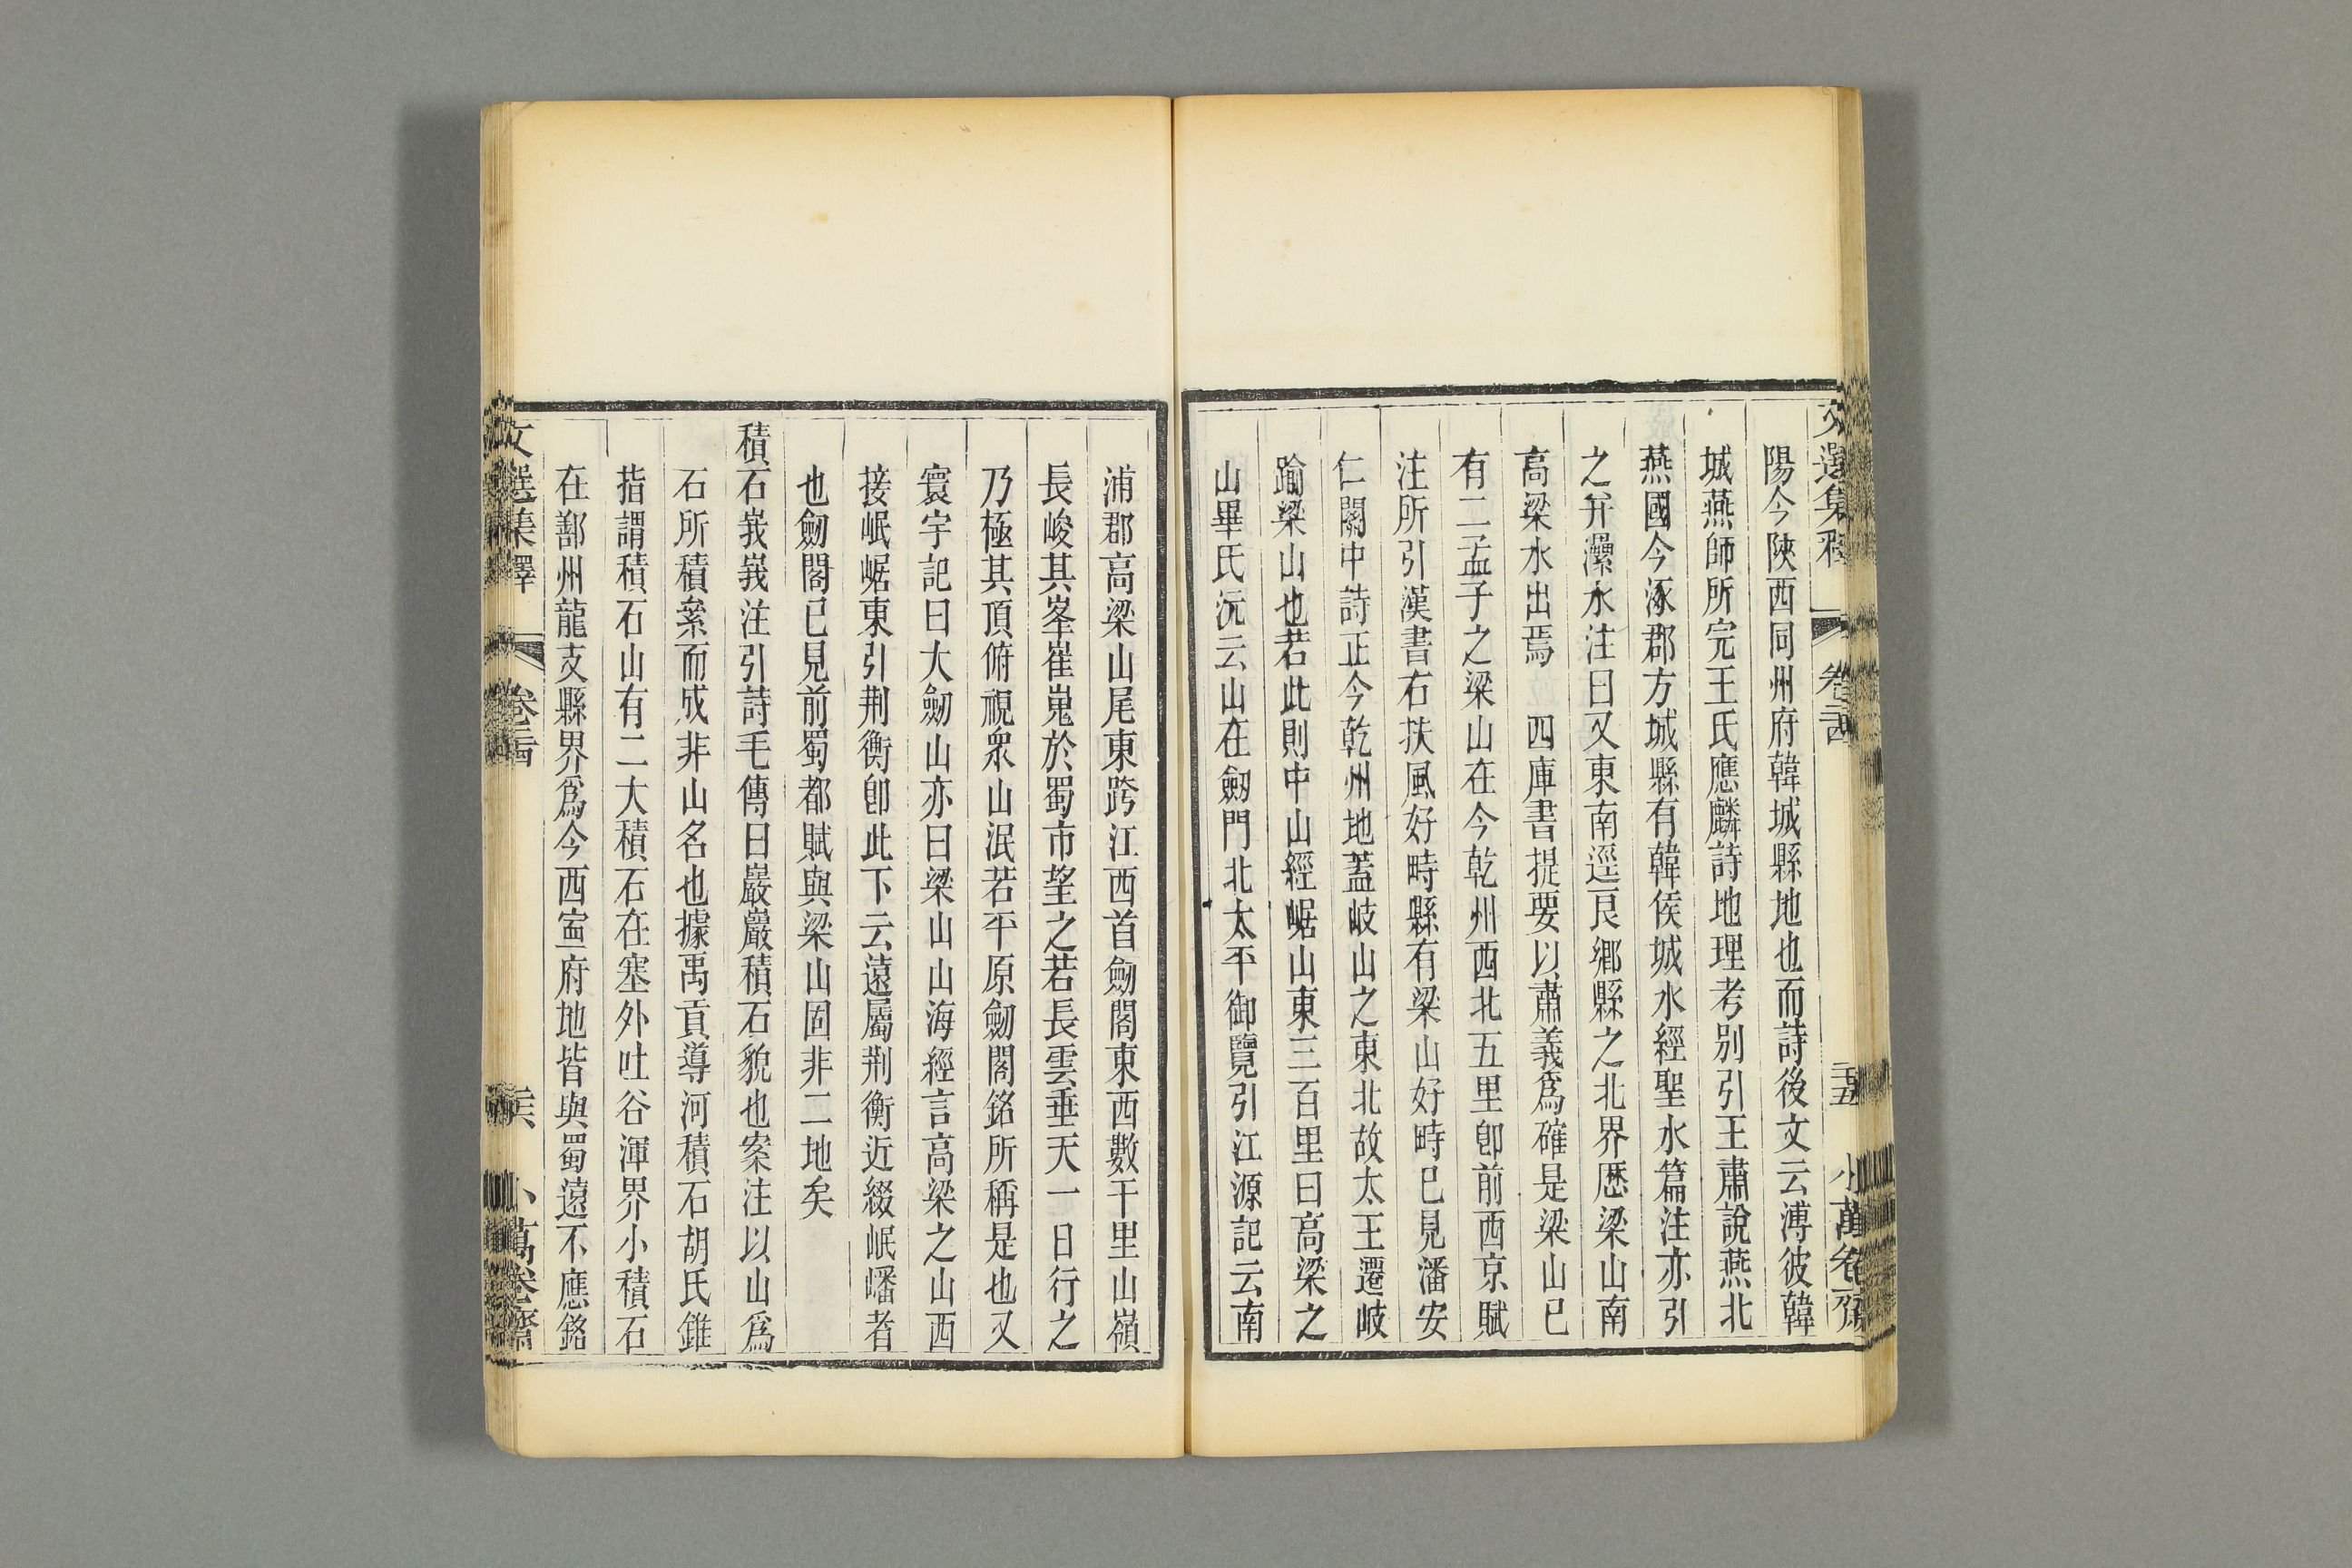 文選集釋 卷二十四 二十五 小萬卷齋
陽今陝西同州府韓城縣地也而詩後文云溥彼韓
城燕師所完王氏應麟詩地理考别引王肅說燕北
燕國今涿郡方城縣有韓侯城水經聖水篇注亦引
之弁㶟水注曰又東南逕良鄉縣之北界歷梁山南
高梁水出焉 四庫書提要以肅義爲確是梁山已
有二孟子之梁山在今乾州西北五里卽前西京賦
注所引漢書右扶風好畤縣有梁山好畤巳見潘安
仁關中詩正今乾州地蓋岐山之東北故太王遷岐
踰梁山也若此則中山經崌山東三百里曰高梁之
山畢氏沅云山在劒門北太平御覽引江源記云南
浦郡高梁山尾東跨江西首劒閣東西數千里山嶺
長峻其峯崔嵬於蜀市望之若長雲垂天一日行之
乃極其頂俯視衆山泯若平原劒閣銘所稱是也又
寰宇記曰大劒山亦曰梁山山海經言高梁之山西
接岷崌東引荆衡卽此下云遠屬荆衡近綴岷嶓者
也劒閣已見前蜀都賦與梁山固非二地矣
積石峩峩注引詩毛傳曰巖巖積石貌也案注以山爲
石所積絫而成非山名也據禹貢導河積石胡氏錐
指謂積石山有二大積石在塞外吐谷渾界小積石
在鄯州龍支縣界爲今西寍府地皆與蜀遠不應銘
文選集釋 卷二十四 小萬卷齋